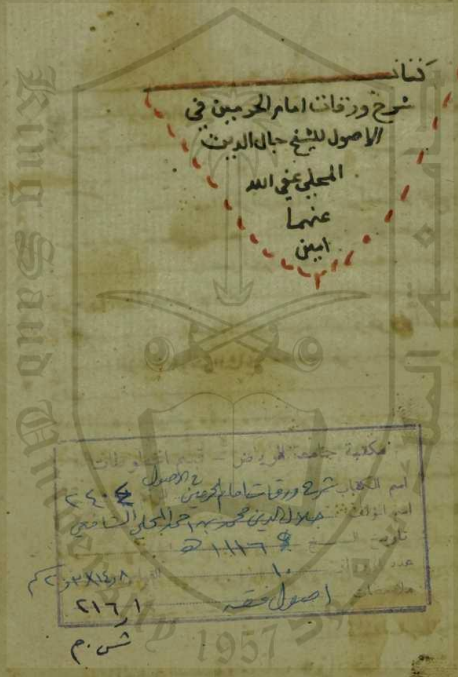 كتاب
شرح ورقات امام الحرمين في
الاصول للشيخ جلال الدين
المحلي عفي الله
عنهما
امين
مكتبة جامعة الرياض - قسم المخطوطات
اسم الكتاب شرح ورقات امام الحرمين في الاصول
اسم المؤلف جلال الدين محمد بن احمد المحلي الشافعي
تاريخ النسخ ١١١٦ هـ
عدد الأوراق ١٠
ملاحظات اصول فقه
٢١٦١
King Saud University
1957